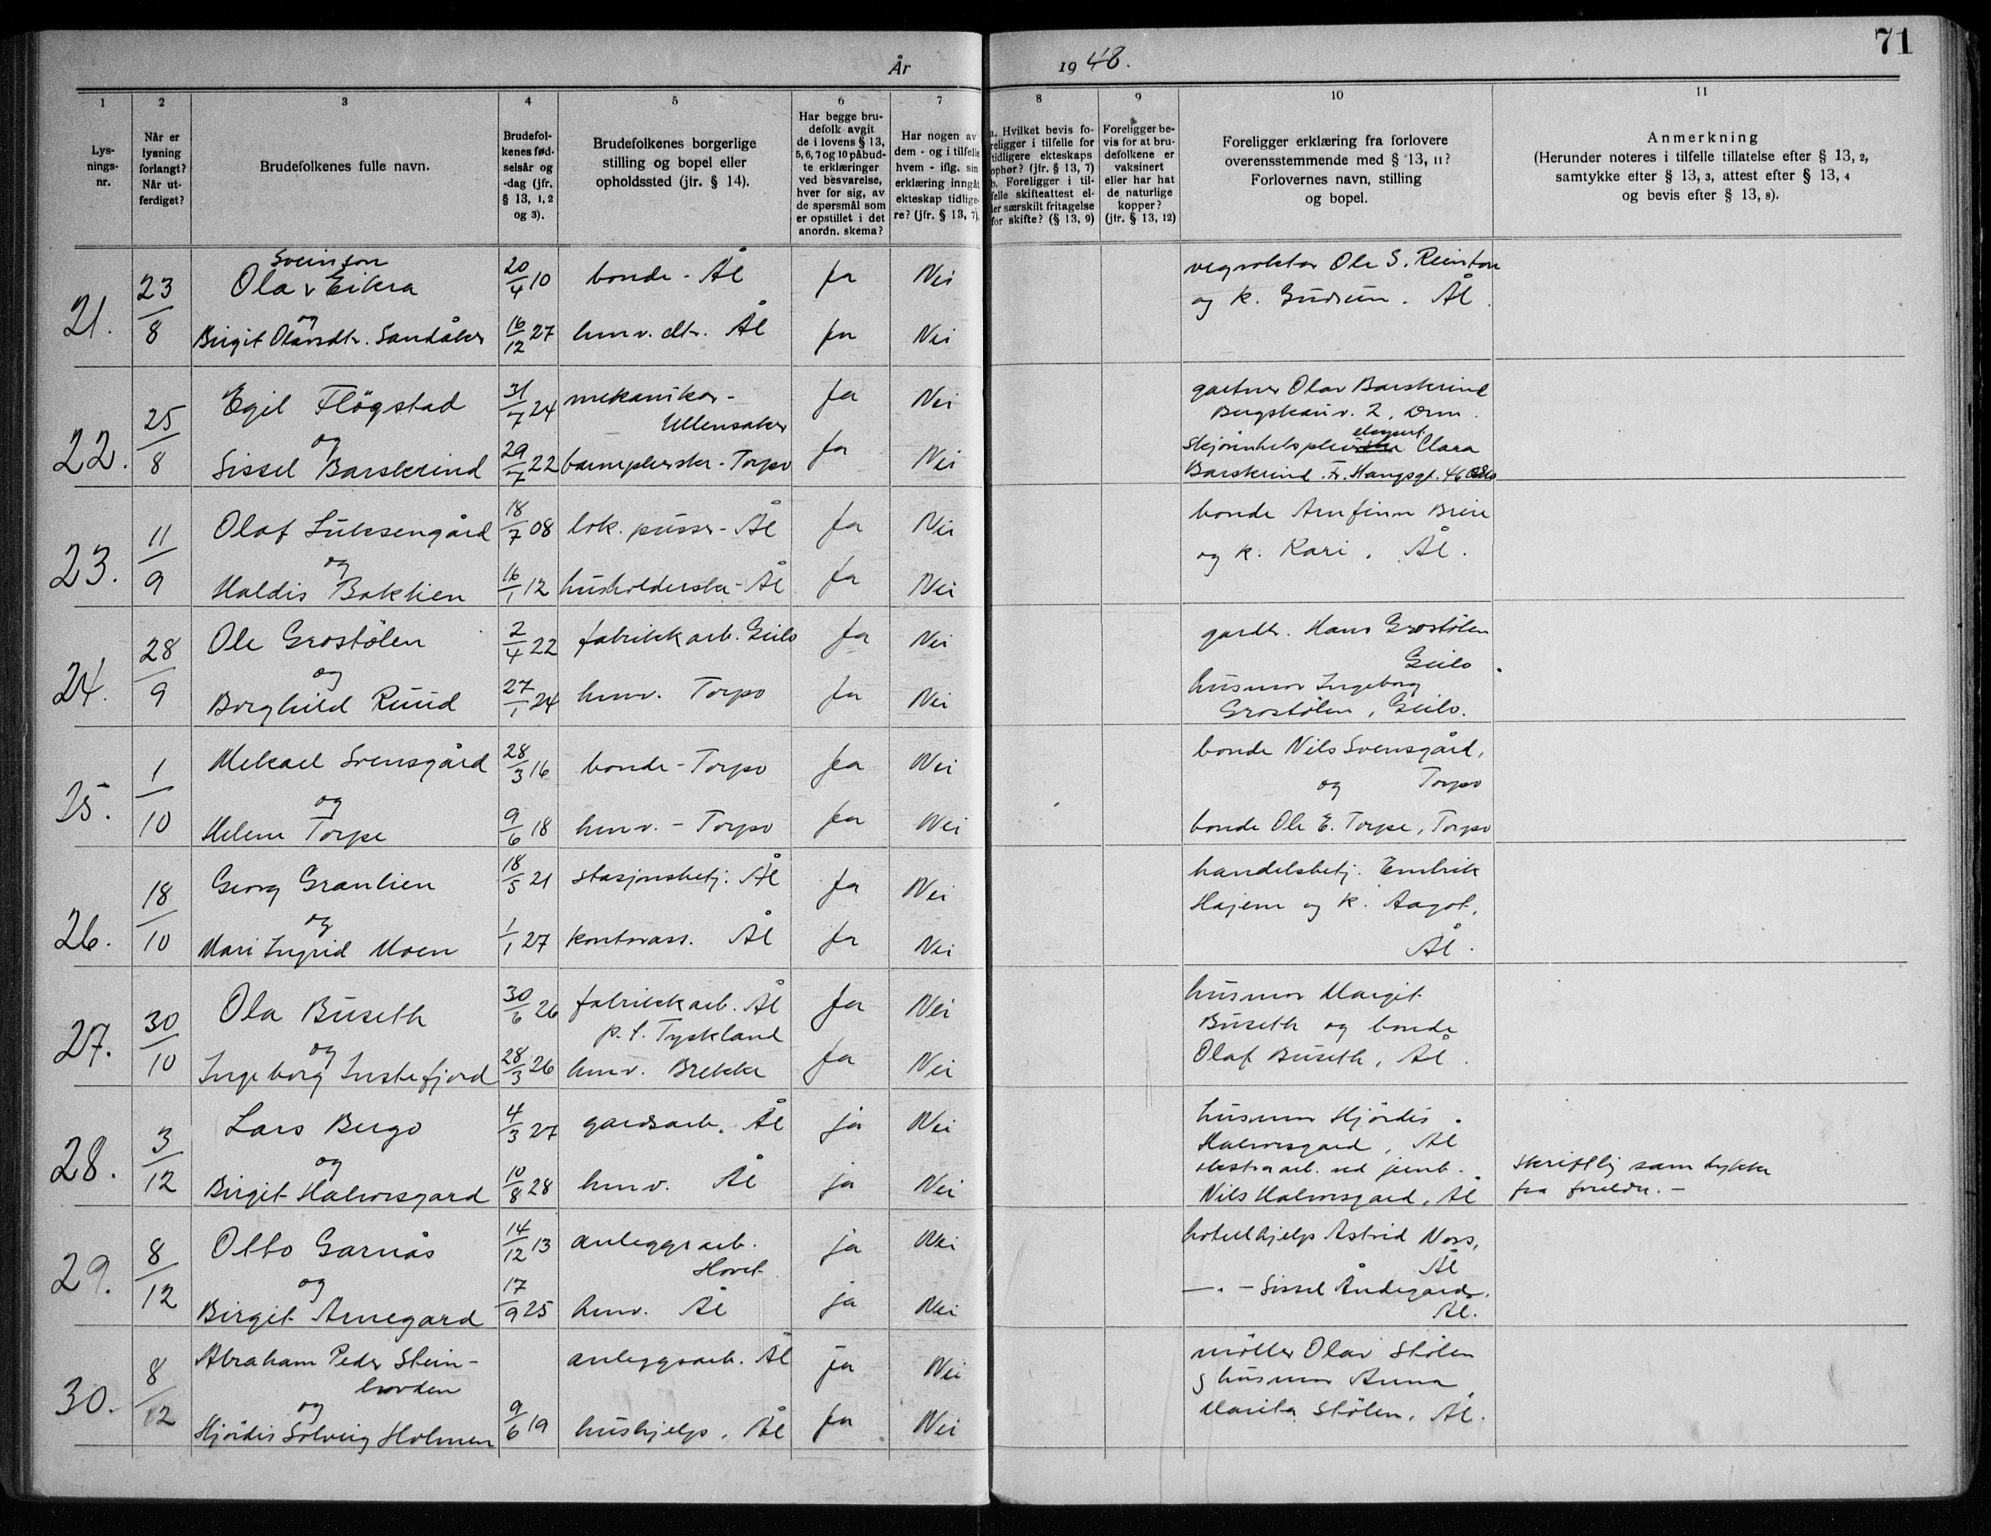 71
År 1948.
1
2
3
4
5
6
7
8
9
10
11
Lys-
nings-
nr.
Når er
lysning
forlangt?
Når ut-
ferdiget?
Brudefolkenes fulle navn.
Brudefol-
kenes fød-
selsår og
-dag (jfr.
§ 13, 1, 2
og 3).
Brudefolkenes borgerlige
stilling og bopel eller
opholdssted (jfr. § 14).
Har begge bru-
defolk avgit
de i lovens § 13,
5, 6, 7 og 10 påbud-
te erklæringer
ved besvarelse,
hver for sig, av
de spørsmål som
er opstillet i det
anordn. skema?
Har nogen av
dem - og i tilfelle
hvem - iflg. sin
erklæring inngåt
ekteskap tidlige-
re? (jfr. § 13, 7).
a. Hvilket bevis fo-
religger i tilfelle for
tidligere ekteskaps
ophør? (jfr. § 13, 7)
b. Foreligger i til-
felle skifteattest el-
ler særskilt fritagelse
for skifte? (§ 13, 9)
Foreligger be-
vis for at bru-
defolkene er
vaksinert
eller har hat
de naturlige
kopper?
(jfr. § 13, 12)
Foreligger erklæring fra forlovere
overensstemmende med § 13, 11?
Forlovernes navn, stilling
og bopel.
Anmerkning
(Herunder noteres i tilfelle tillatelse efter § 13, 2,
samtykke efter § 13, 3, attest efter § 13, 4
og bevis efter § 13, 8).
21. 23/8
Sveinson
Ola v Eikra 20/4 10 bonde - Ål Ja Nei vegvokter Ole S. Reinton
og k. Gudrun. Ål.
og
Birgit Olavsdtr. Sandåker 16/12 27 hmv. dtr. Ål Ja Nei
22. 25/8
Egil Flögstad 31/7 24 mekaniker - Ja Nei gartner Olav Barskrind
Ullensaker
og
Sissel Barskrind 29/7 22 barnepleierske - Torpo Ja Nei
Clara
Barskrind. Fr. Hangsgt. 46 Oslo
23. 11/9
Olaf Luksengård 18/7 08 lok. pusser - Ål Ja Nei bonde Arnfinn Breie
og k. Kari, Ål.
og
Haldis Baklien 16/1 12 husholderske - Ål Ja Nei
24. 28/9
Ole Grostølen 2/4 22 fabrikkarb. Geilo Ja Nei gardbr. Hans Grostølen
Geilo.
og
Borghild Ruud 27/1 24 hmv. Torpo Ja Nei husmor Ingeborg
Grostølen, Geilo.
25. 1/10
Mekael Svensgård 28/3 16 bonde - Torpo Ja Nei bonde Nils Svensgård,
og Torpo
og
Helene Torpe 9/6 18 hmv. - Torpo Ja Nei bonde Ole E. Torpe, Torpo
26. 18/10
Georg Granlien 18/5 21 stasjonsbetj. Ål Ja Nei handelsbetj. Embrik
Hajem og k. Aagot,
og
Mari Ingrid Moen 1/1 27 kontorass. Ål Ja Nei Ål.
27. 30/10
Ola Buseth 30/6 26 fabrikkarb. Ål Ja Nei husmor Margit
p.t. Tyskland
Buseth og bonde
og
Ingeborg Instefjord 28/3 26 hmv. Brekke Ja Nei Olaf Buseth, Ål.
28. 3/12
Lars Bergo 4/3 27 gardsarb. Ål ja Nei husmor Hjördis
Halvorsgard, Ål
og
Birgit Halvorsgard 10/8 28 hmv. Ål ja Nei ekstraarb. ved jernb.
Nils Halvorsgard, Ål
skriftlig samtykke
fra foreldre. -
29. 8/12
Otto Garnås 14/12 13 anleggsarb. ja Nei hotellhjelp Astrid Nors,
Hovet Ål
og
Birgit Arnegard 17/9 25 hmv. Ål ja Nei - " - Sissel Åndegard.
Ål.
30. 8/12
Abraham Peder Stein- anleggsarb. Ål ja Nei møller Olav Stølen
hovden
og
Hjördis Solveig Holmen 9/6 19 hushjelp, Ål Ja Nei husmor Anna
Marita Stølen, Ål.